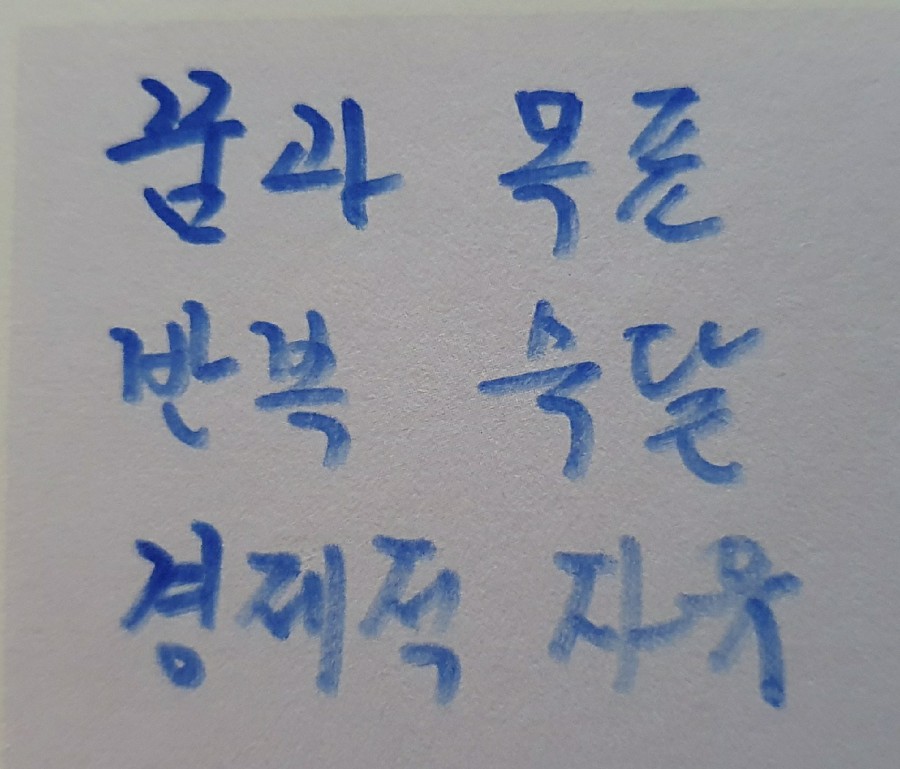 꿈과 목표
반복 숙달
경제적 자유